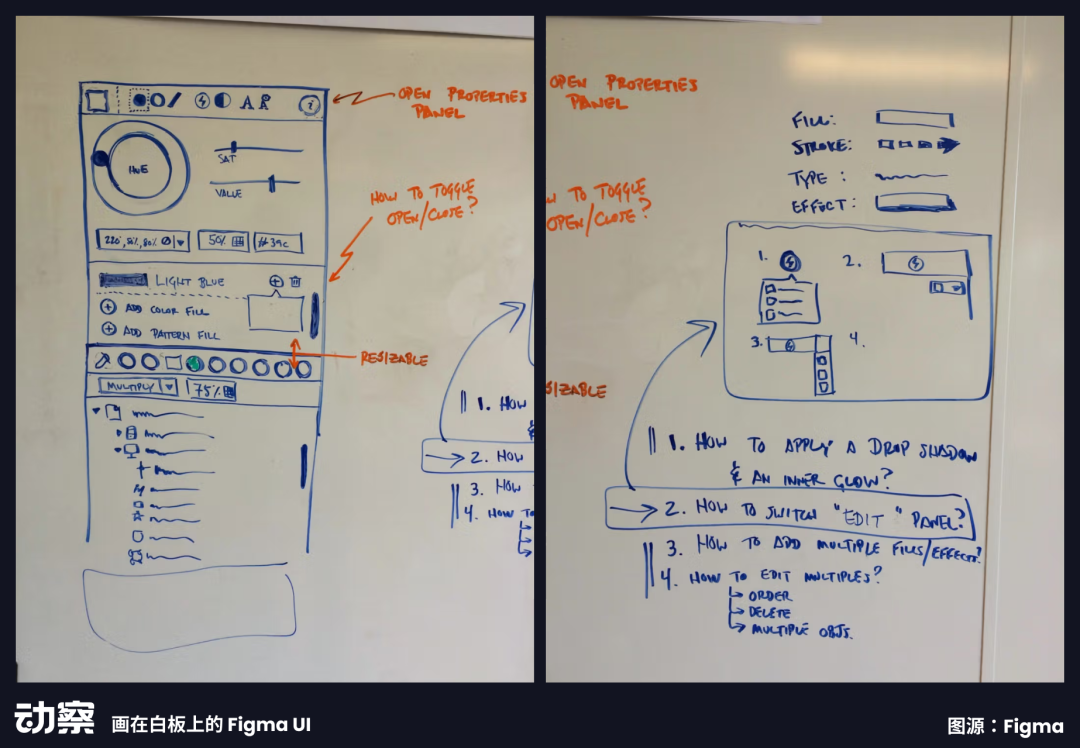 A
?
OPEN PROPERTIES
PANEL
HUE
SAT
VALUE
HOW TO TOGGLE
OPEN/CLOSE?
50%
#39c
LIGHT BLUE
ADD COLOR FILL
ADD PATTERN FILL
RESIZABLE
MULTIPLY
75%
1. HOW
&
2. HOW
3. HOW
4. HOW TO
OPEN PROPERTIES
PANEL
W TO TOGGLE
OPEN/CLOSE?
SIZABLE
FILL:
STROKE:
TYPE:
EFFECT:
1.
2.
3.
4.
1. HOW TO APPLY A DROP SHADOW
& AN INNER GLOW?
2. HOW TO SWITCH "EDIT" PANEL?
3. HOW TO ADD MULTIPLE FILLS/EFFECTS?
4. HOW TO EDIT MULTIPLES?
ORDER
DELETE
MULTIPLE OBJS.
动察
画在白板上的 Figma UI
图源：Figma